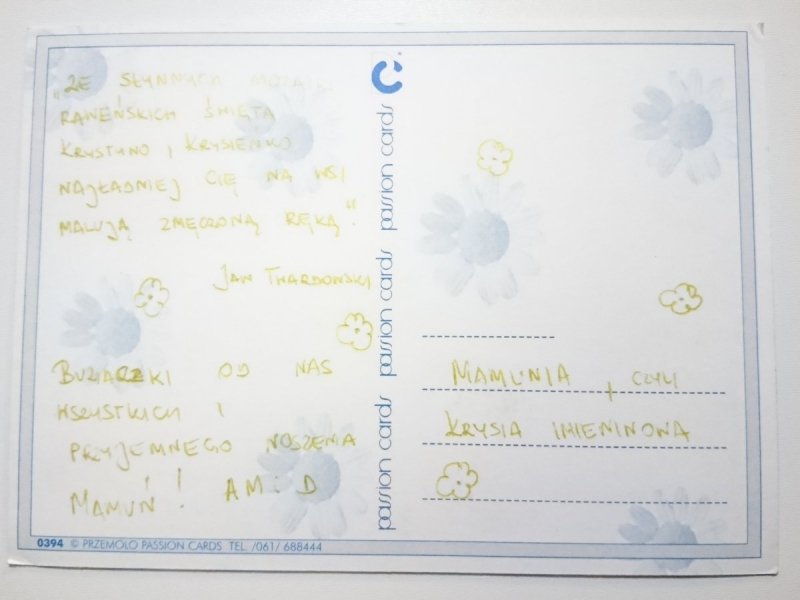 „ZE SŁYNNYCH MOZAIK
RAWEŃSKICH ŚWIĘTA
KRYSTYNO, KRYSIEŃKO
NAJŁADNIEJ CIĘ NA WSI
MALUJĄ ZMĘCZONĄ RĘKĄ."
JAN TWARDOWSKI
BUZIACZKI OD NAS
WSZYSTKICH I
PRZYJEMNEGO NOSZENIA
MAMUŃ! AM i D
passion cards
passion cards
passion cards
MAMUNIA, CZYLI
KRYSIA IMIENINOWA
0394 © PRZEMOLO PASSION CARDS TEL. /061/ 688444